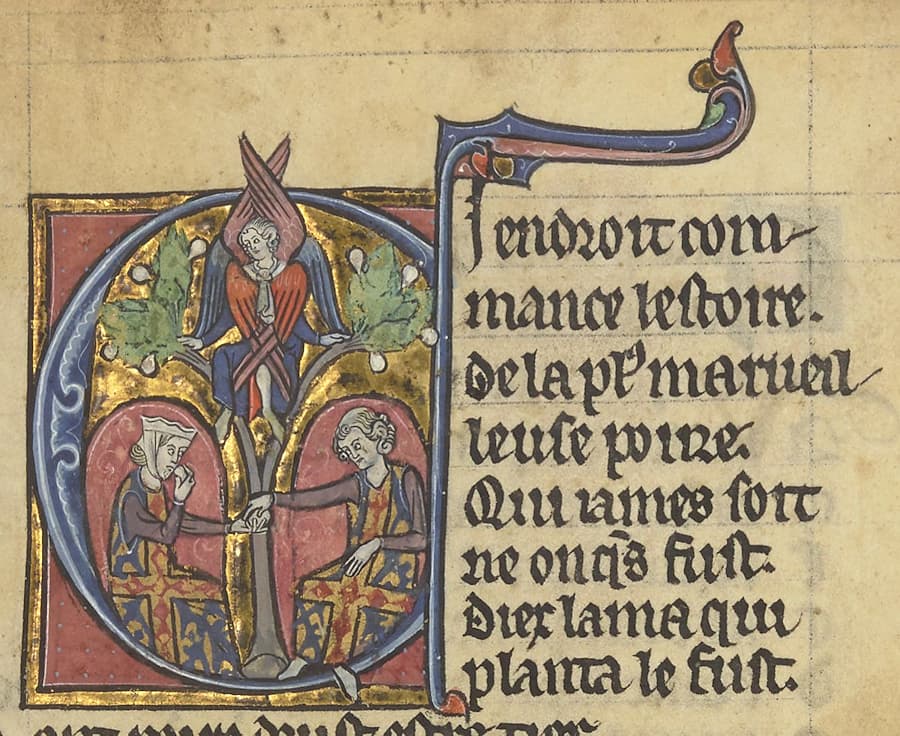 Ci endroit com-
mance lestoire.
De la plꝰ marueil-
leuse poire.
Qui iames soit
ne onq̄s fust.
Diex lama qui
planta le fust.